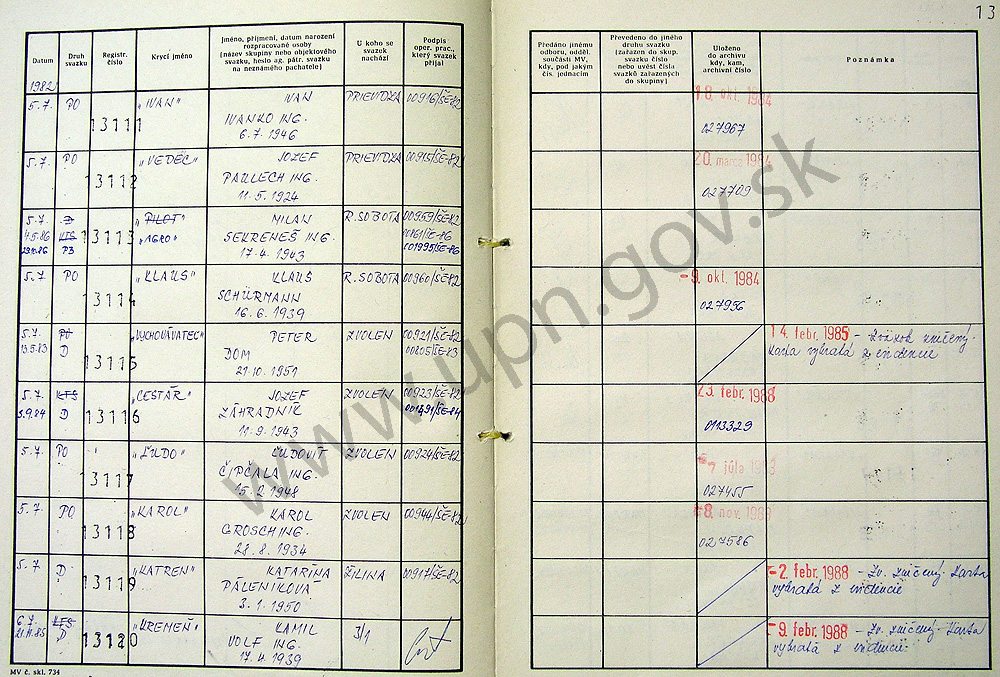 13
Datum
Druh
svazku
Registr.
číslo
Krycí jméno
Jméno, příjmení, datum narození
rozpracované osoby
(název skupiny nebo objektového
svazku, heslo ag. pátr. svazku
na neznámého pachatele)
U koho se
svazek
nachází
Podpis
oper. prac.,
který svazek
přijal
Předáno jinému
odboru, odděl.
součásti MV,
kdy, pod jakým
čís. jednacím
Převedeno do jiného
druhu svazku
(zařazen do skup.
svazku číslo
nebo uvést čísla
svazků zařazených
do skupiny)
Uloženo
do archivu
kdy, kam,
archivní číslo
Poznámka
1982
5.7. PO 13111 „IVAN" IVAN PRIEVDZA 00916/ŠE-82 18. okt. 1984
IVANKO ING. 027967
6.7.1946
5.7. PO 13112 „VEDEC" JOZEF PRIEVDZA 00915/ŠE-82 20. marca 1984
PAULECH ING. 027709
11.5.1924
5.7. 13113 „PILOT" MILAN R.SOBOTA 00959/ŠE-82
4.5.86 „AGRO" SEKRENEŠ ING. 00161/ŠE-86
PB 17.4.1943 001995/ŠE-86
5.7. PO 13114 „KLAUS" KLAUS R.SOBOTA 00960/ŠE-82 -9. okt. 1984
SCHÜRMANN 027956
16.6.1939
5.7. PO 13115 „VYCHOVÁVATEĽ" PETER ZVOLEN 00921/ŠE-82 14. febr. 1985 - Zväzok zničený.
13.5.83 D DOM 00805/ŠE-83 Karta vybratá z evidencie
21.10.1951
5.7. KTS 13116 „CESTÁR" JOZEF ZVOLEN 00923/ŠE-82 23. febr. 1988
3.9.84 D ZÁHRADNÍK 001491/ŠE-84 013329
11.9.1943
5.7. PO 13117 „ĽUDO" ĽUDOVIT ZVOLEN 00924/ŠE-82 7 júla
ČIPČALA ING. 027455
15.2.1948
5.7. PO 13118 „KAROL" KAROL ZVOLEN 00944/ŠE-82 -8. nov. 1983
GROSCH ING. 027586
28.8.1934
5.7 D 13119 „KATREN" KATARÍNA ŽILINA 00917/ŠE-82 -2. febr. 1988 - Zv. zničený. Karta
PÁLENÍKOVÁ vybratá z evidencie
3.1.1950
6.7. KTS 13120 „KREMEŇ" KAMIL 3/1 -9. febr. 1988 - Zv. zničený. Karta
21.11.85 D VOLF ING. vybratá z evidencie.
17.4.1939
MV č. skl. 734
www.upn.gov.sk